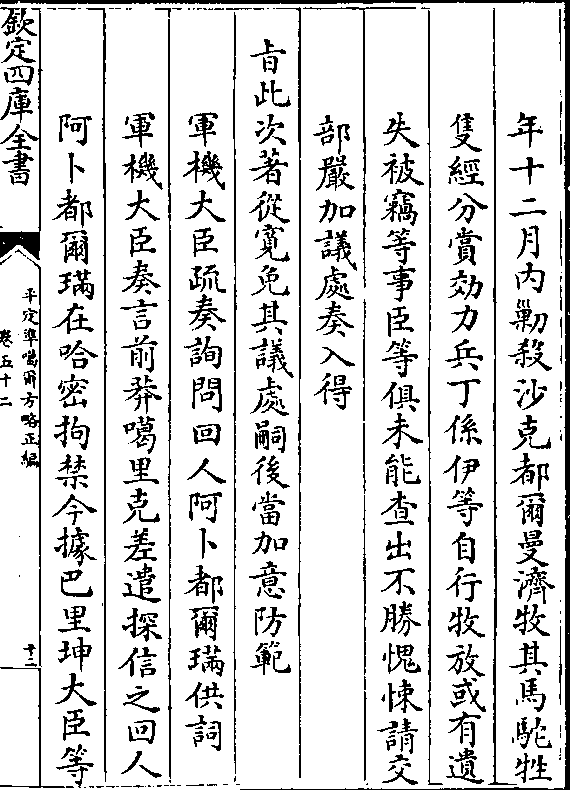 年十二月内剿殺沙克都爾曼濟牧其馬駝牲
隻經分賞効力兵丁係伊等自行牧放或有遺
失被竊等事臣等俱未能查出不勝愧悚請交
部嚴加議處奏入得
㫖此次著從寛免其議處嗣後當加意防範
軍機大臣疏奏詢問回人阿卜都爾璊供詞
軍機大臣奏言前莽噶里克差遣探信之回人
阿卜都爾璊在哈密拘禁今據巴里坤大臣等
欽定四庫全書
平定準噶爾方略正編
卷五十二
十二